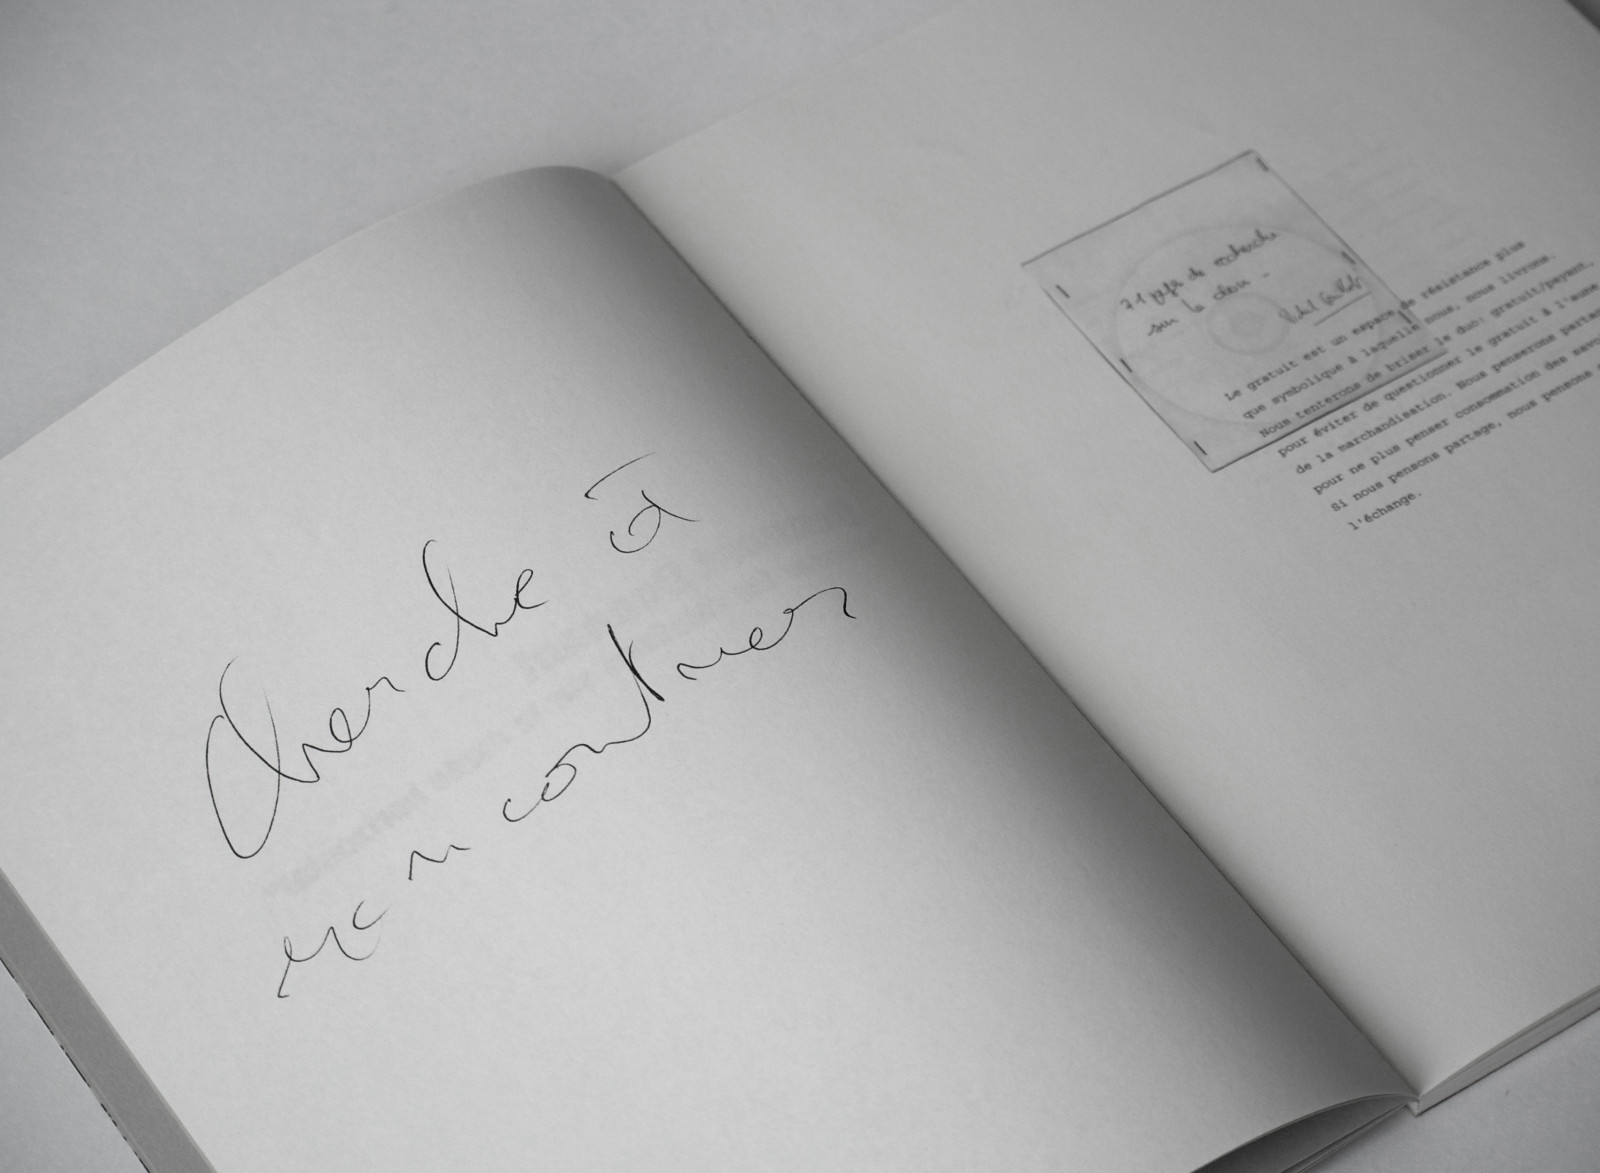 Cherche à
rencontrer
de recherche
sur le don -
Le gratuit est un espace de résistance plus
que symbolique à laquelle nous, nous livrons.
Nous tenterons de briser le duo: gratuit/payant,
pour éviter de questionner le gratuit à l'aune
de la marchandisation. Nous penserons
pour ne plus penser consommation des
Si nous pensons partage, nous pensons
l'échange.